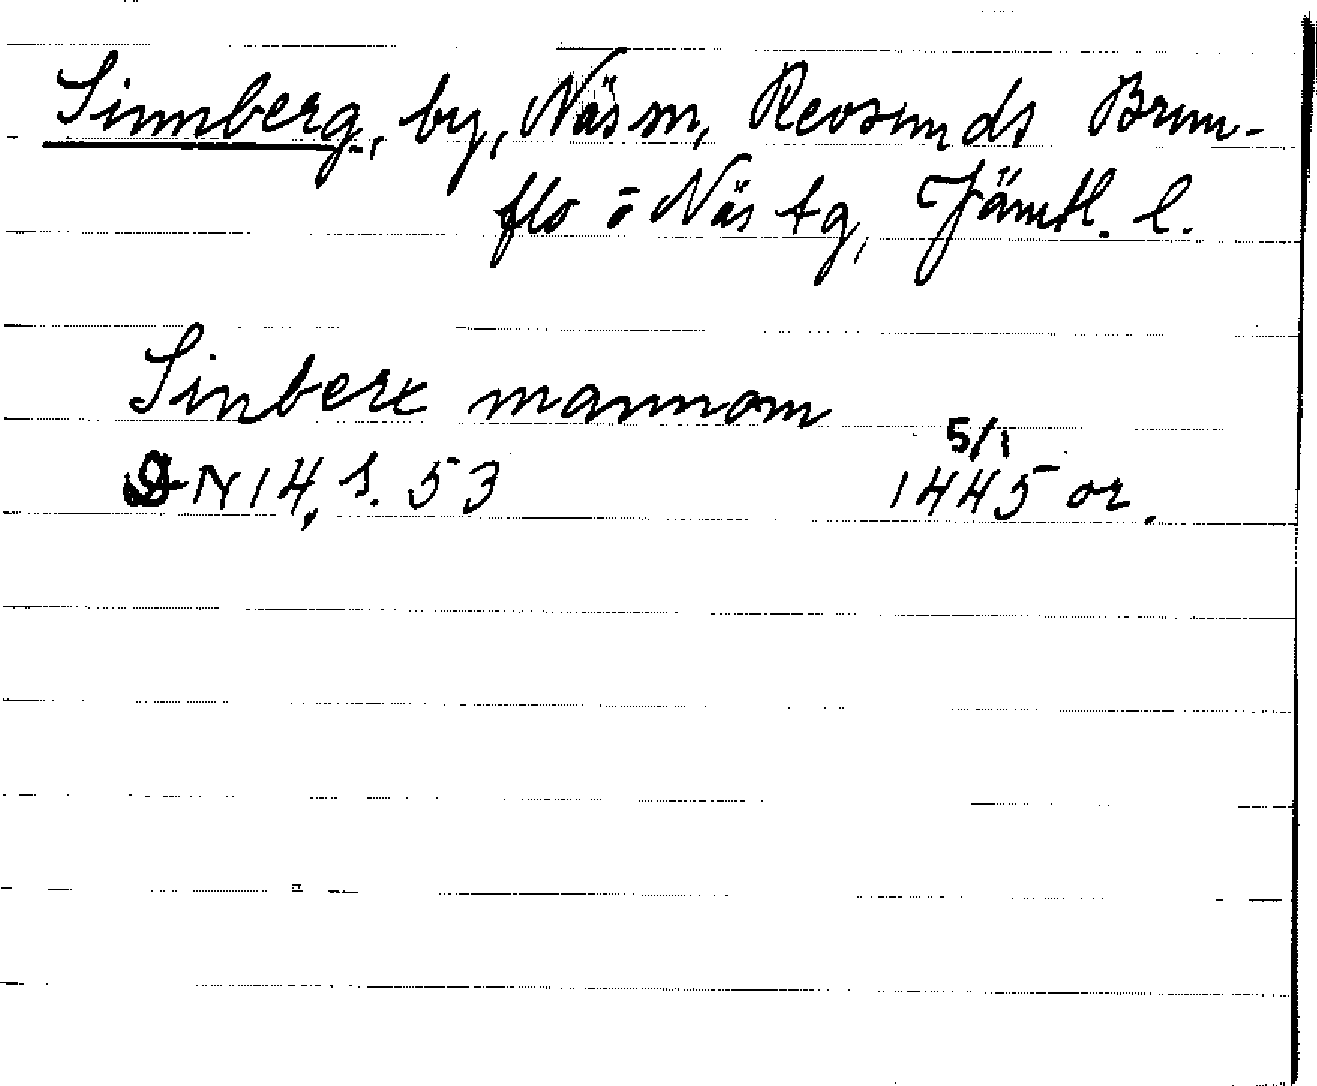 Sinnberg, by, Näs sn, Revsunds Brun-
flo o Näs tg, Jämtl. l.
Sinberc mannom
5/1
DN 14, s. 53 1445 or.